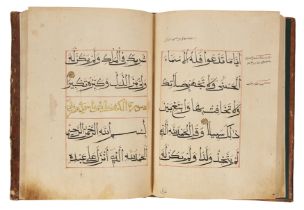 ايا ما تدعوا فله الاسماء
الحسنى ولا تجهر بصلاتك
ولا تخافت بها وابتغ بين
ذلك سبيلا وقل الحمد لله الذي
لم يتخذ ولدا ولم يكن له
شريك في الملك ولم يكن له
ولي من الذل وكبره تكبيرا
سورة الكهف
بسم الله الرحمن الرحيم
الحمد لله الذي انزل على عبده